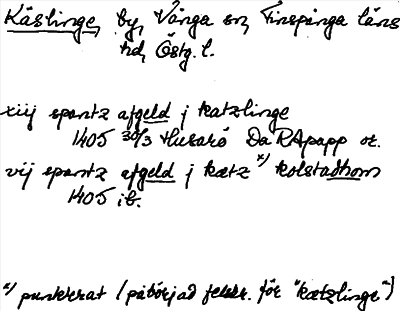 Käslinge, by, Vånga sn, Finspånga läns
hd, Östg. l.
xiij spantz afgeld j katzlinge
1405 30/3 Husarö Da RApapp or.
vij spantz afgeld j kætz x) kolstadhom
1405 ib.
x) punkterat (påbörjad felskr. för "kætzlinge")